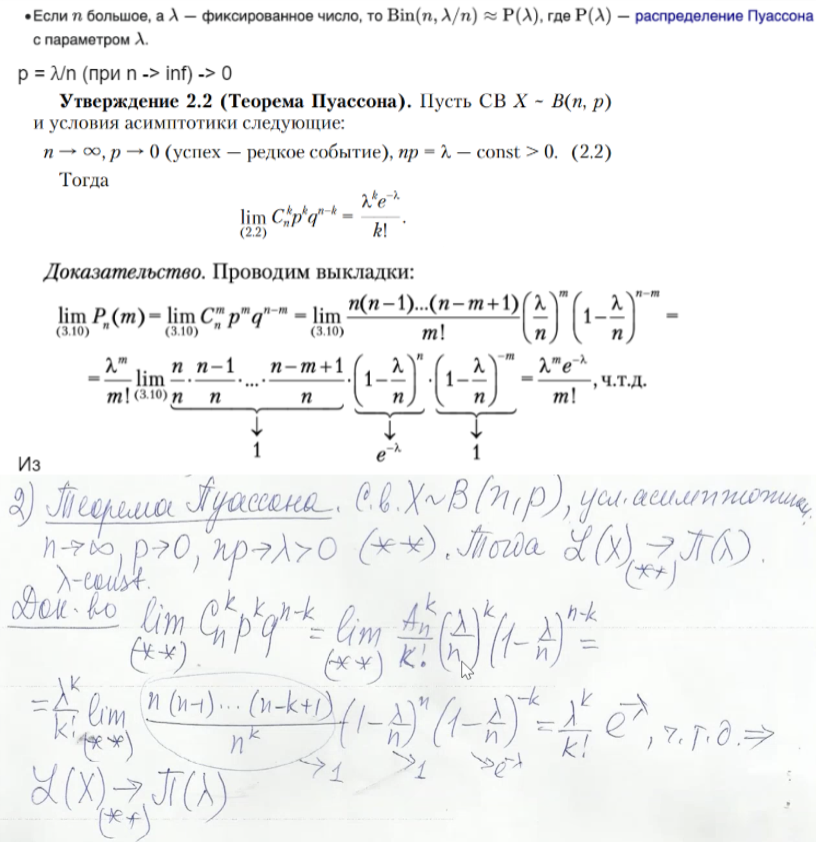 • Если n большое, а λ — фиксированное число, то Bin(n, λ/n) ≈ P(λ), где P(λ) — распределение Пуассона
с параметром λ.
p = λ/n (при n -> inf) -> 0
Утверждение 2.2 (Теорема Пуассона). Пусть СВ X ~ B(n, p)
и условия асимптотики следующие:
n → ∞, p → 0 (успех — редкое событие), np = λ — const > 0. (2.2)
Тогда
lim_(2.2) C_n^k p^k q^{n−k} = λ^k e^{−λ} / k! .
Доказательство. Проводим выкладки:
lim_(3.10) P_n(m) = lim_(3.10) C_n^m p^m q^{n−m} = lim_(3.10) n(n−1)...(n−m+1) / m! (λ/n)^m (1 − λ/n)^{n−m} =
= λ^m / m! lim_(3.10) n/n · n−1/n · ... · n−m+1/n · (1 − λ/n)^n · (1 − λ/n)^{−m} = λ^m e^{−λ} / m! , ч.т.д.
↓ ↓ ↓
1 e^{−λ} 1
Из
2) Теорема Пуассона. С.в. X ~ B(n, p), усл. асимптотики
n→∞, p→0, np→λ>0 (**). Тогда ℒ(X) →_(**) П(λ).
λ-const.
Док-во lim_(**) C_n^k p^k q^{n-k} = lim_(**) A_n^k / k! (λ/n)^k (1 - λ/n)^{n-k} =
= λ^k / k! lim_(**) n(n-1)...(n-k+1) / n^k (1 - λ/n)^n (1 - λ/n)^{-k} = λ^k / k! e^{-λ}, ч.т.д. ⇒
→1 →1 →e^{-λ}
ℒ(X) →_(**) П(λ)